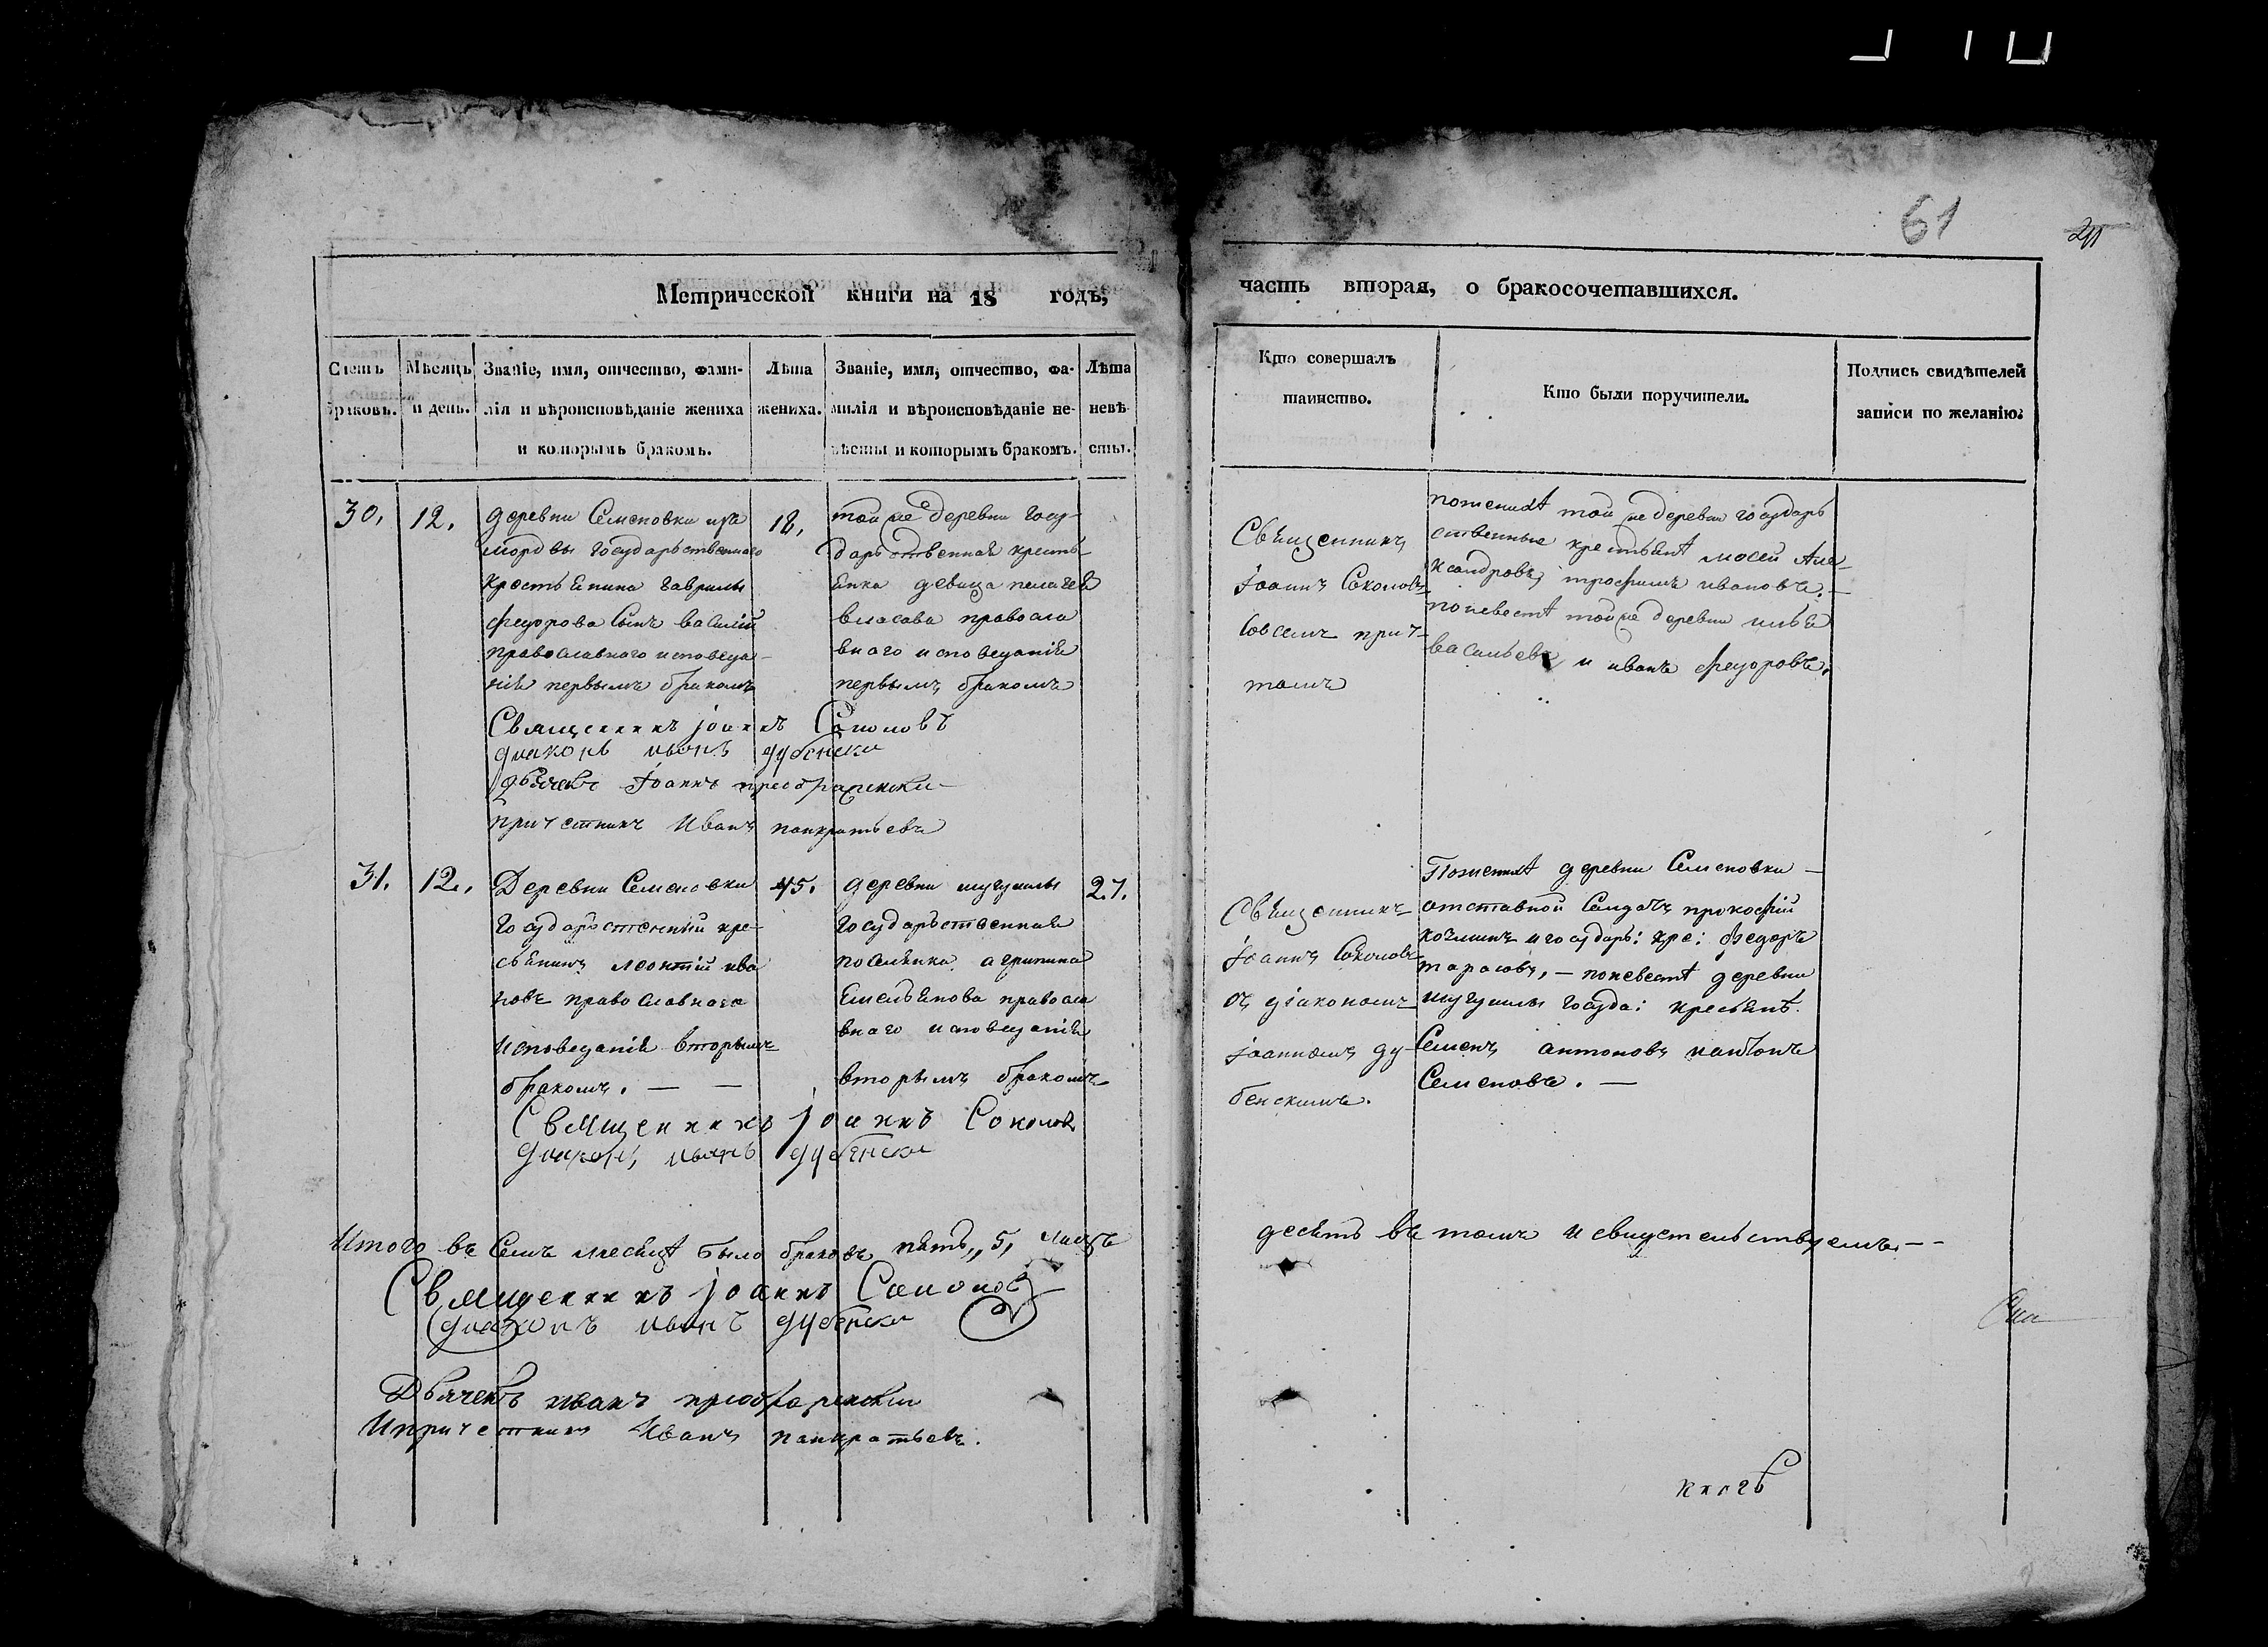 61
Метрической книги на 18 годъ,
часть вторая, о бракосочетавшихся.
Счетъ браковъ.
Мѣсяцъ и день.
Званіе, имя, отчество, фами-
лія и вѣроисповѣданіе жениха
и которымъ бракомъ.
Лѣта
жениха.
Званіе, имя, отчество, фа-
милія и вѣроисповѣданіе не-
вѣсты и которымъ бракомъ.
Лѣта
невѣ-
сты.
Кто совершалъ
таинство.
Кто были поручители.
Подпись свидѣтелей
записи по желанію.
30.
12.
деревни Семеновки изъ
мордвы государственнаго
крестьѣнина гаврилы
федорова Сынъ василій
православнаго исповеда-
ніѣ первымъ бракомъ
18,
той же деревни госу-
дарственнаѣ кресть-
ѣнка девица пелагеѣ
власова правосла
внаго исповеданіѣ
первымъ бракомъ
Свѣщенникъ
Іоаннъ Соколовъ
совсемъ прич-
томъ
поженихѣ той же деревни государь
ственные крестьѣнѣ мосей Але-
ксандровъ, трофимъ ивановъ.—
поневестѣ той же деревни ильѣ
васильевъ и иванъ федоровъ.
Священникъ іоаннъ Соколовъ
диаконъ иванъ дубенски
дьячекъ Іоаннъ преображенски
причетникъ Иванъ панкратьевъ
31.
12.
Деревни Семеновки
государственный кре-
сьѣнинъ леонтій ива
новъ православнаго
исповеданіѣ вторымъ
бракомъ. — —
45.
деревни шугушлы
государственнаѣ
поселѣнка агрипина
Емельѣнова правосла
внаго исповеданіѣ
вторымъ бракомъ
27.
Свѣщенникъ
Іоаннъ Соколовъ
съ діакономъ
іоанномъ ду-
бенскимъ.
Поженихѣ деревни Семеновки —
отставной Салдатъ прокофій
и государь: кре: федоръ
тарасовъ, — поневестѣ деревни
шугушлы госуда: кресьѣнѣ.
Семенъ антоновъ
Семеновъ. —
Священникъ іоаннъ Соколовъ
диаконъ иванъ дубенски
Итого въ Семъ месѣцѣ было браковъ пѣть,, 5, лицъ
десѣть въ томъ и свидетельствуемъ.— -
Священникъ іоаннъ Соколовъ
диаконъ иванъ дубенски
Дьячекъ иванъ преображенски
И причетникъ Иванъ панкратьевъ.